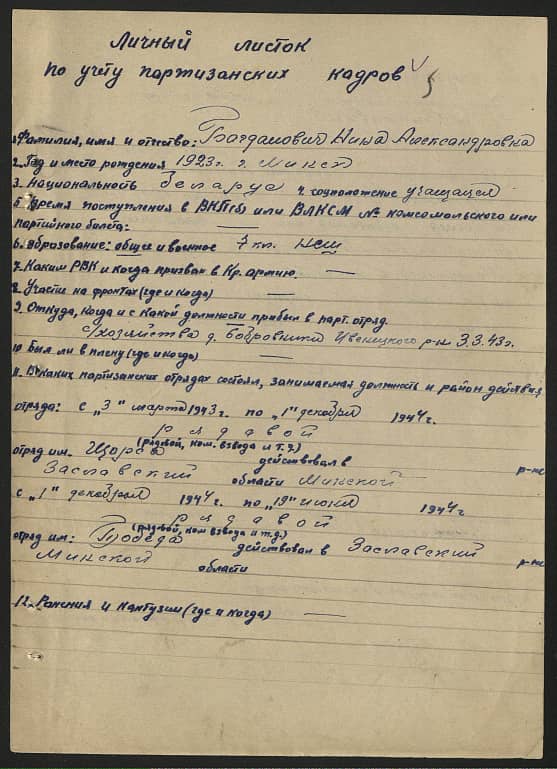 Личный листок
по учету партизанских кадров
1. Фамилия, имя и отчество: Богданович Нина Александровна
2. Год и место рождения 1923 г. г. Минск
3. Национальность Беларус 4. соцположение учащаяся
5. Время поступления в ВКП(б) или ВЛКСМ № комсомольского или
партийного билета: —
6. Образование: общее и военное 7 кл. НСШ
7. Каким РВК и когда призван в Кр. армию. —
8. Участи на фронтах (где и когда) —
9. Откуда, когда и с какой должности прибыл в парт. отряд.
с/хозяйства д. Бобровичи Ивенецкого р-на 3.3.43 г.
10. Был ли в плену (где и когда) —
11. В каких партизанских отрядах состоял, занимаемая должность и район действия
отряда: с „3" марта 1943 г. по „1" декабря 1944 г.
рядовой
(рядовой, ком. взвода и т.д.)
отряд им. Щорса действовал в
Заславский р-не
области Минской
с „1" декабря 1944 г. по „19" июня 1944 г.
рядовой
(рядовой, ком взвода и т.д.)
отряд им: Победа действовал в Заславский
Минской области р-не
12. Ранения и контузии (где и когда) —